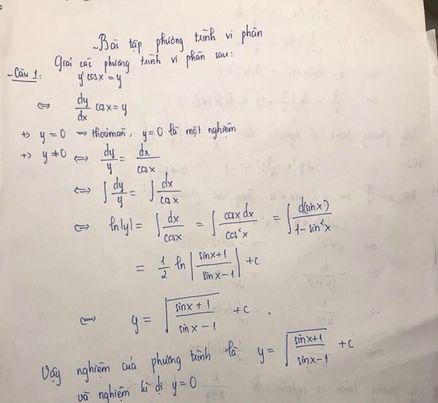 Bài tập phương trình vi phân
Giải các phương trình vi phân sau:
- Câu 1: y' cosx = y
⇔ dy/dx cosx = y
+> y = 0 → thoả mãn, y = 0 là một nghiệm
+> y ≠ 0 ⇔ dy/y = dx/cosx
⇔ ∫ dy/y = ∫ dx/cosx
⇔ ln|y| = ∫ dx/cosx = ∫ cosx dx/cos²x = ∫ d(sinx)/1 - sin²x
= 1/2 ln |sinx+1/sinx-1| + C
⇔ y = √|sinx+1/sinx-1| + C.
Vậy nghiệm của phương trình là y = √|sinx+1/sinx-1| + C
và nghiệm kì dị y = 0